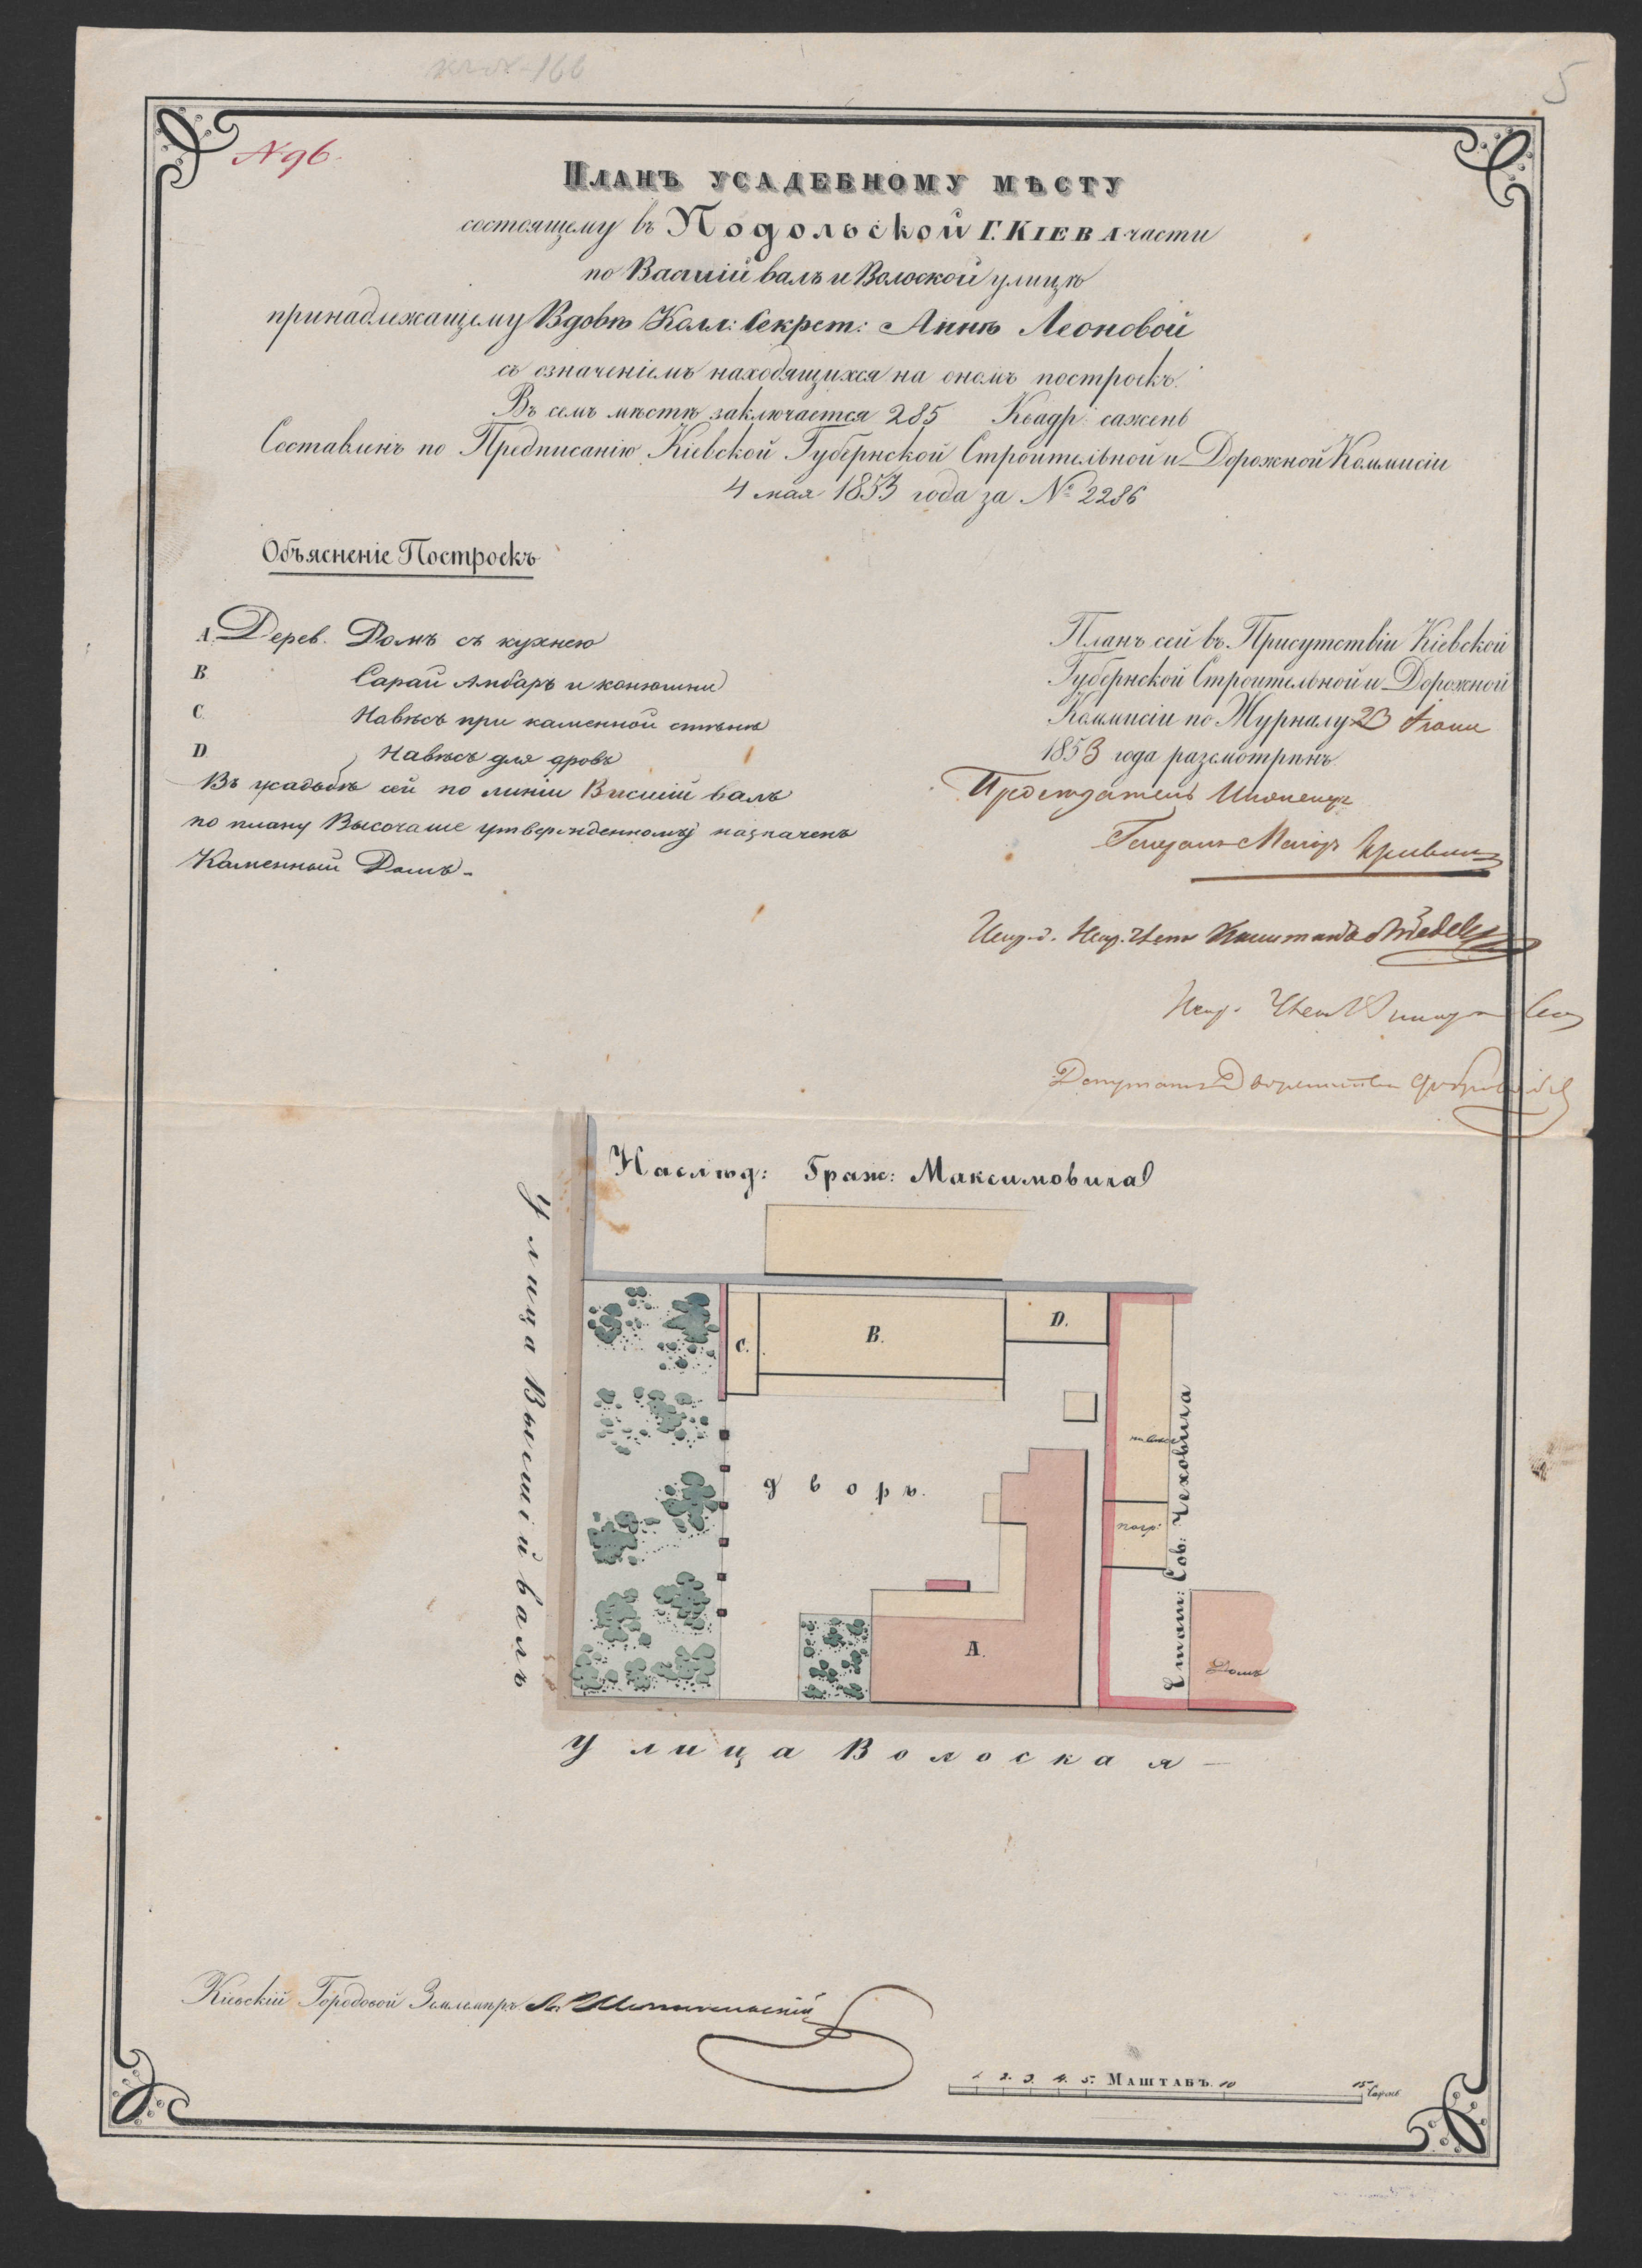 5
N 96.
ПЛАНЪ УСАДЕБНОМУ МѢСТУ
состоящему въ Подольской Г. КІЕВА части
по Высшій валъ и Волоской улицѣ
принадлежащему Вдовѣ Колл: Секрет: Аннѣ Леоновой
съ означеніемъ находящихся на ономъ построекъ.
Въ семъ мѣстѣ заключается 285 Квадр: сажень
Составленъ по Предписанію Кіевской Губернской Строительной и Дорожной Коммисіи
4 мая 1853 года за № 2286
Объясненіе Построекъ
A. Дерев. Домъ съ кухнею
B. Сарай Амбаръ и конюшни
C. Навѣсъ при каменной стѣнѣ
D. Навѣсъ для дровъ
Въ усадьбѣ сей по линіи Высшій валъ
по плану Высочаше утвержденному назначенъ
Каменный Домъ.
Планъ сей въ Присутствіи Кіевской
Губернской Строительной и Дорожной
Коммисіи по Журналу 23
1853 года разсмотренъ.
Предсѣдатель Инженеръ
Генералъ-Маіоръ
Членъ Капитанъ
Членъ
Депутатъ Дворянства
Наслѣд: Граж: Максимовича
Улица Высшій валъ
C.
B.
D.
дворъ.
навѣсъ
погр:
Стат: Сов: Чеховича
A.
Домъ
Улица Волоская
Кіевскій Городовой Землемѣръ
1. 2. 3. 4. 5. МАШТАБЪ. 10 15 Сажень